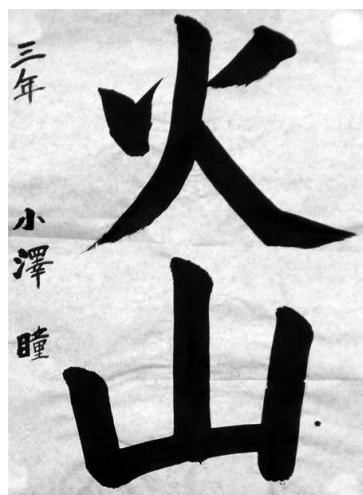 火山
三年 小澤 瞳